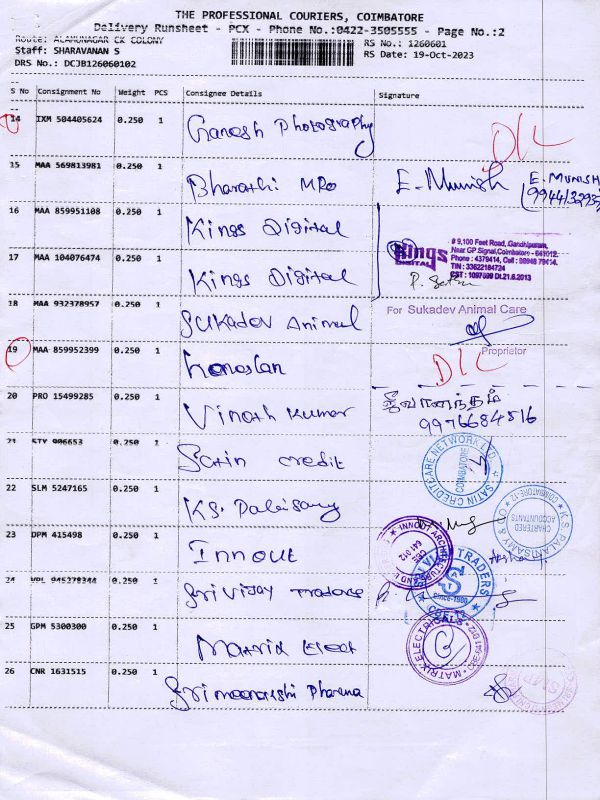 THE PROFESSIONAL COURIERS, COIMBATORE
Delivery Runsheet - PCX - Phone No.:0422-3505555 - Page No.:2
Route: ALAMUNAGAR CK COLONY
RS No.: 1260601
Staff: SHARAVANAN S
RS Date: 19-Oct-2023
DRS No.: DCJB126060102
S No Consignment No Weight PCS Consignee Details Signature
14 IXM 504405624 0.250 1 Ganesh Photography D/L
15 MAA 569813981 0.250 1 Bharathi MRO E. Munish E. MUNISH
16 MAA 859951108 0.250 1 Kings Digital
Kings DIGITAL
# 9,100 Feet Road, Gandhipuram,
Near GP Signal, Coimbatore - 641012.
Phone : 4379414, Cell :
TIN : 33622184724
CST : 1097599 Dt.21.6.2013
17 MAA 104076474 0.250 1 Kings Digital
18 MAA 932378957 0.250 1 Sukadev Animal For Sukadev Animal Care
Proprietor
19 MAA 859952399 0.250 1 D/L
20 PRO 15499285 0.250 1 Vinoth Kumar ஜீவானந்தம்
9976684516
21 STY 906653 0.250 1 Satin credit SATIN CREDITCARE NETWORK LTD. COIMBATORE
22 SLM 5247165 0.250 1 K.S. Palaisamy K.S. PALANISAMY & CO CHARTERED ACCOUNTANTS COIMBATORE-12
23 DPM 415498 0.250 1 Innout
24 VPL 945278344 0.250 1 Sri Vijay Traders VIJAY TRADERS Since-1980
25 GPM 5300300 0.250 1 Matrix Elect MATRIX ELECTRICALS
26 CNR 1631515 0.250 1 Sri meenakshi Pharma